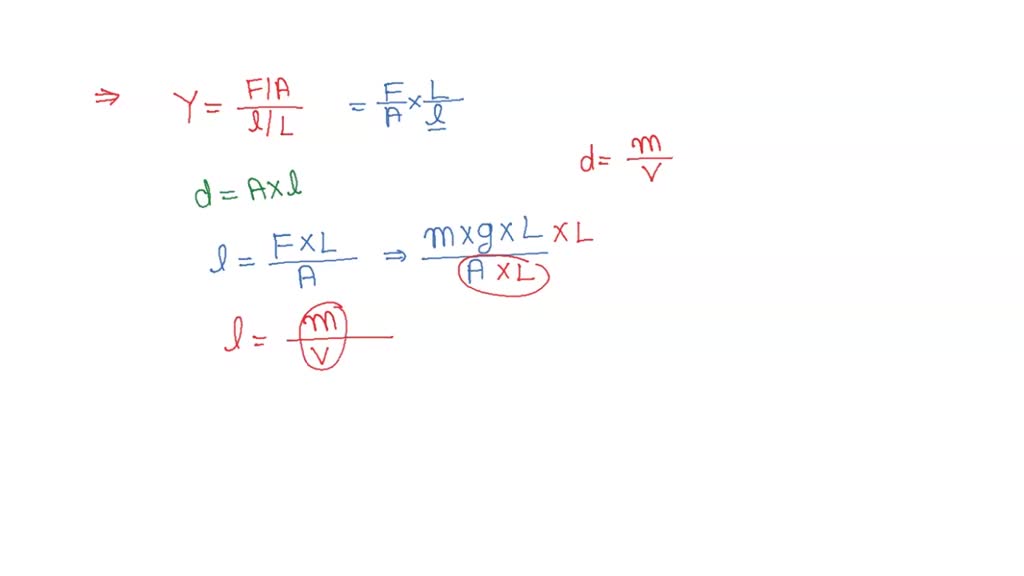 ⇒ Y = F/A / l/L = F/A × L/l
d = m/V
d = A×l
l = F×L / A ⇒ m×g×L ×L / A ×L
l = m/V